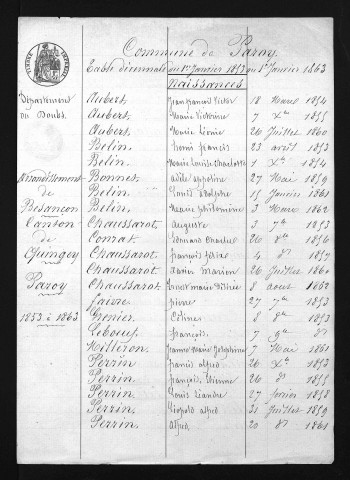 Commune de Paroy
Table décennale du 1er Janvier 1853 au 1er Janvier 1863
Naissances
Département
du Doubs.
Arrondissement
de
Besançon
Canton
de
Quingey
Paroy
1853 à 1863
Aubert, Jean françois Victor 18 Mars 1854
Aubert, Marie Victorine 7 Xbre 1855
Aubert, Marie Léonie 26 Juillet 1860
Belin, francis 23 avril 1853
Belin, Marie Louise Charlotte 1 Xbre 1854
Bonnet, adèle appoline 27 Mai 1859
Belin, Louis adolphe 15 Janvier 1861
Belin, Marie philomine 3 Mars 1862
Chaussarot, Auguste 3 7bre 1853
Comat, Edmond Charles 26 8bre 1856
Chaussarot, françois félix 4 do 1857
Chaussarot Xavier Marien 26 Juillet 1860
Chaussarot, 8 aout 1862
faivre, pierre 27 7bre 1853
Grenier, Céline 8 8bre 1853
Leboeuf, françois 7 9bre do
Milleron, Jeanne Marie Joséphine 7 Mai 1861
Perrin francis alfred 26 Xbre 1853
Perrin, françois Etienne 26 do 1855
Perrin, Louis Léandre 27 fevrier 1858
Perrin, Léopold alfred 31 Juillet 1859
Perrin, alfred 20 do 1861